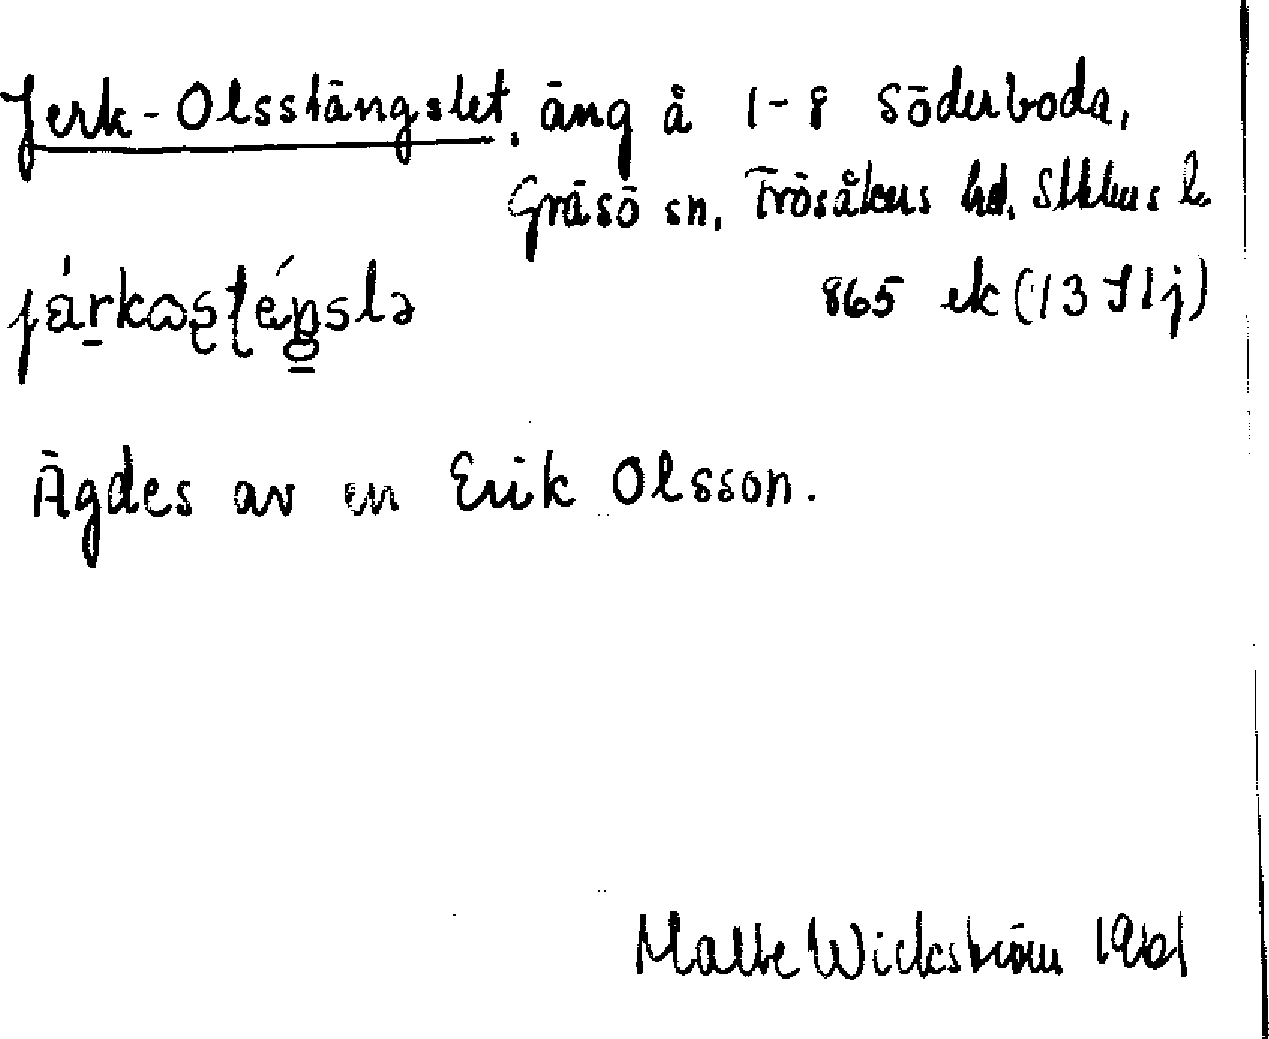 Jerk-Olsstängslet, äng å 1-8 Söderboda,
Gräsö sn, Frösåkers hd, Sthlms l.
865 ek (13 I 1 j)
Ägdes av en Erik Olsson.
Malte Wickström 1961